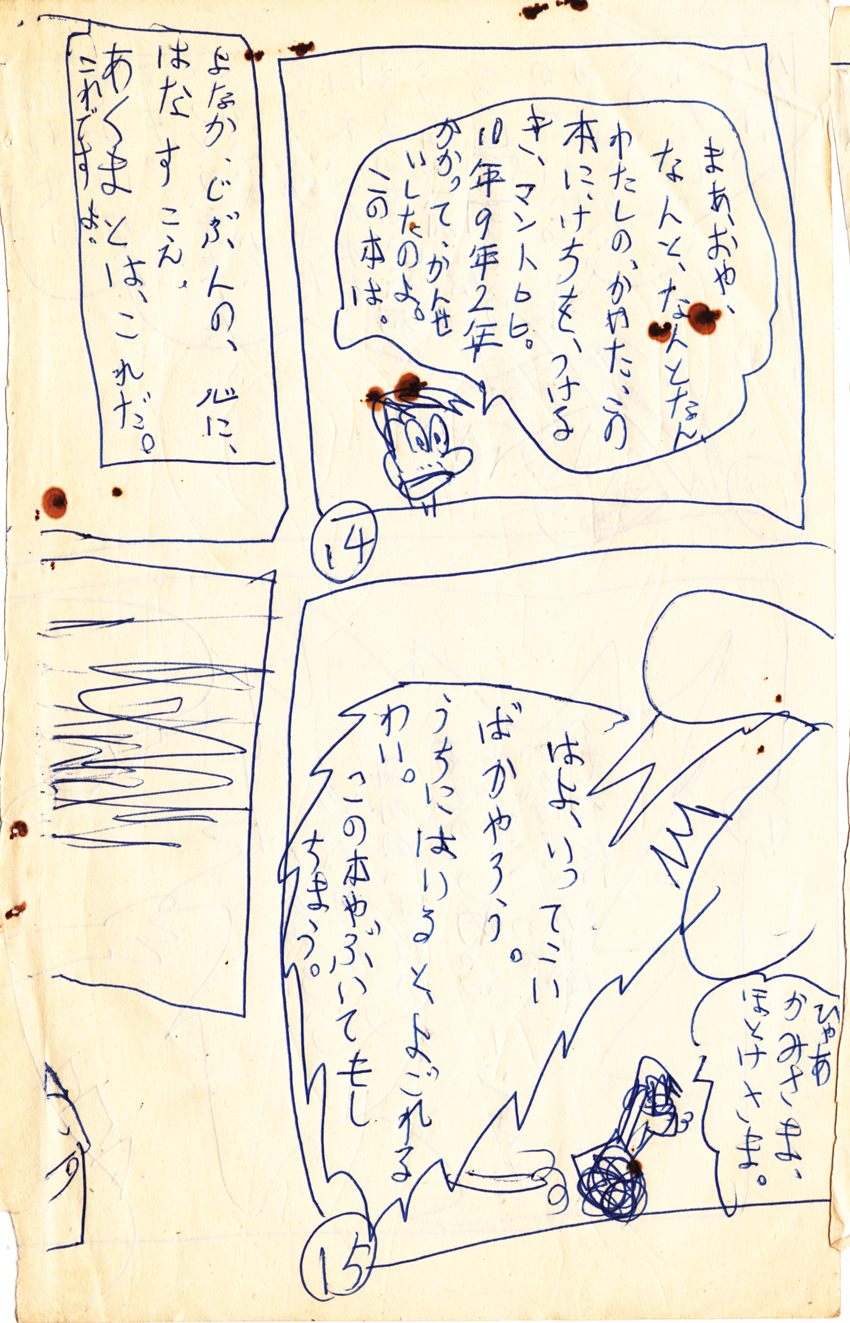 まあ、おや、
なんと、なんとなん、
わたしの、かいた、この
本に、けちを、つける
き、マントヒヒ。
10年9年2年
かかって、かんせ
いしたのよ。
この本は。
14
よなか、じぶ、んの、心に、
はな す こえ、
あくまとは、これだ。
これですよ。
ひゃあ
かみさま、
ほとけさま。
はよ、いってこい
ばかやろう。
うちにはいると、よごれる
わい。
この本やぶいてもし
ちまう。
15